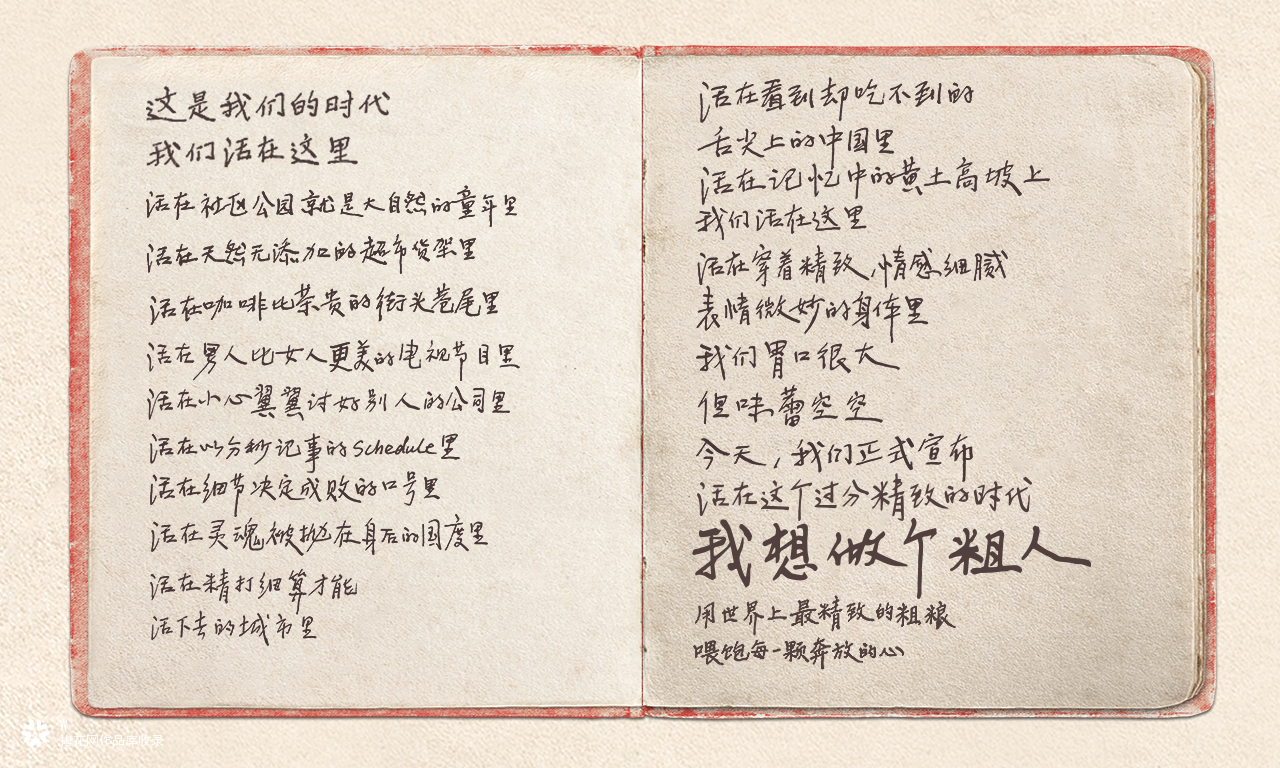 这是我们的时代
我们活在这里
活在社区公园就是大自然的童年里
活在天然无添加的超市货架里
活在咖啡比茶贵的街头巷尾里
活在男人比女人更美的电视节目里
活在小心翼翼讨好别人的公司里
活在以分秒记事的schedule里
活在细节决定成败的口号里
活在灵魂被抛在身后的国度里
活在精打细算才能
活下去的城市里
活在看到却吃不到的
舌尖上的中国里
活在记忆中的黄土高坡上
我们活在这里
活在穿着精致,情感细腻
表情微妙的身体里
我们胃口很大
但味蕾空空
今天,我们正式宣布
活在这个过分精致的时代
我想做个粗人
用世界上最精致的粗粮
喂饱每一颗奔放的心